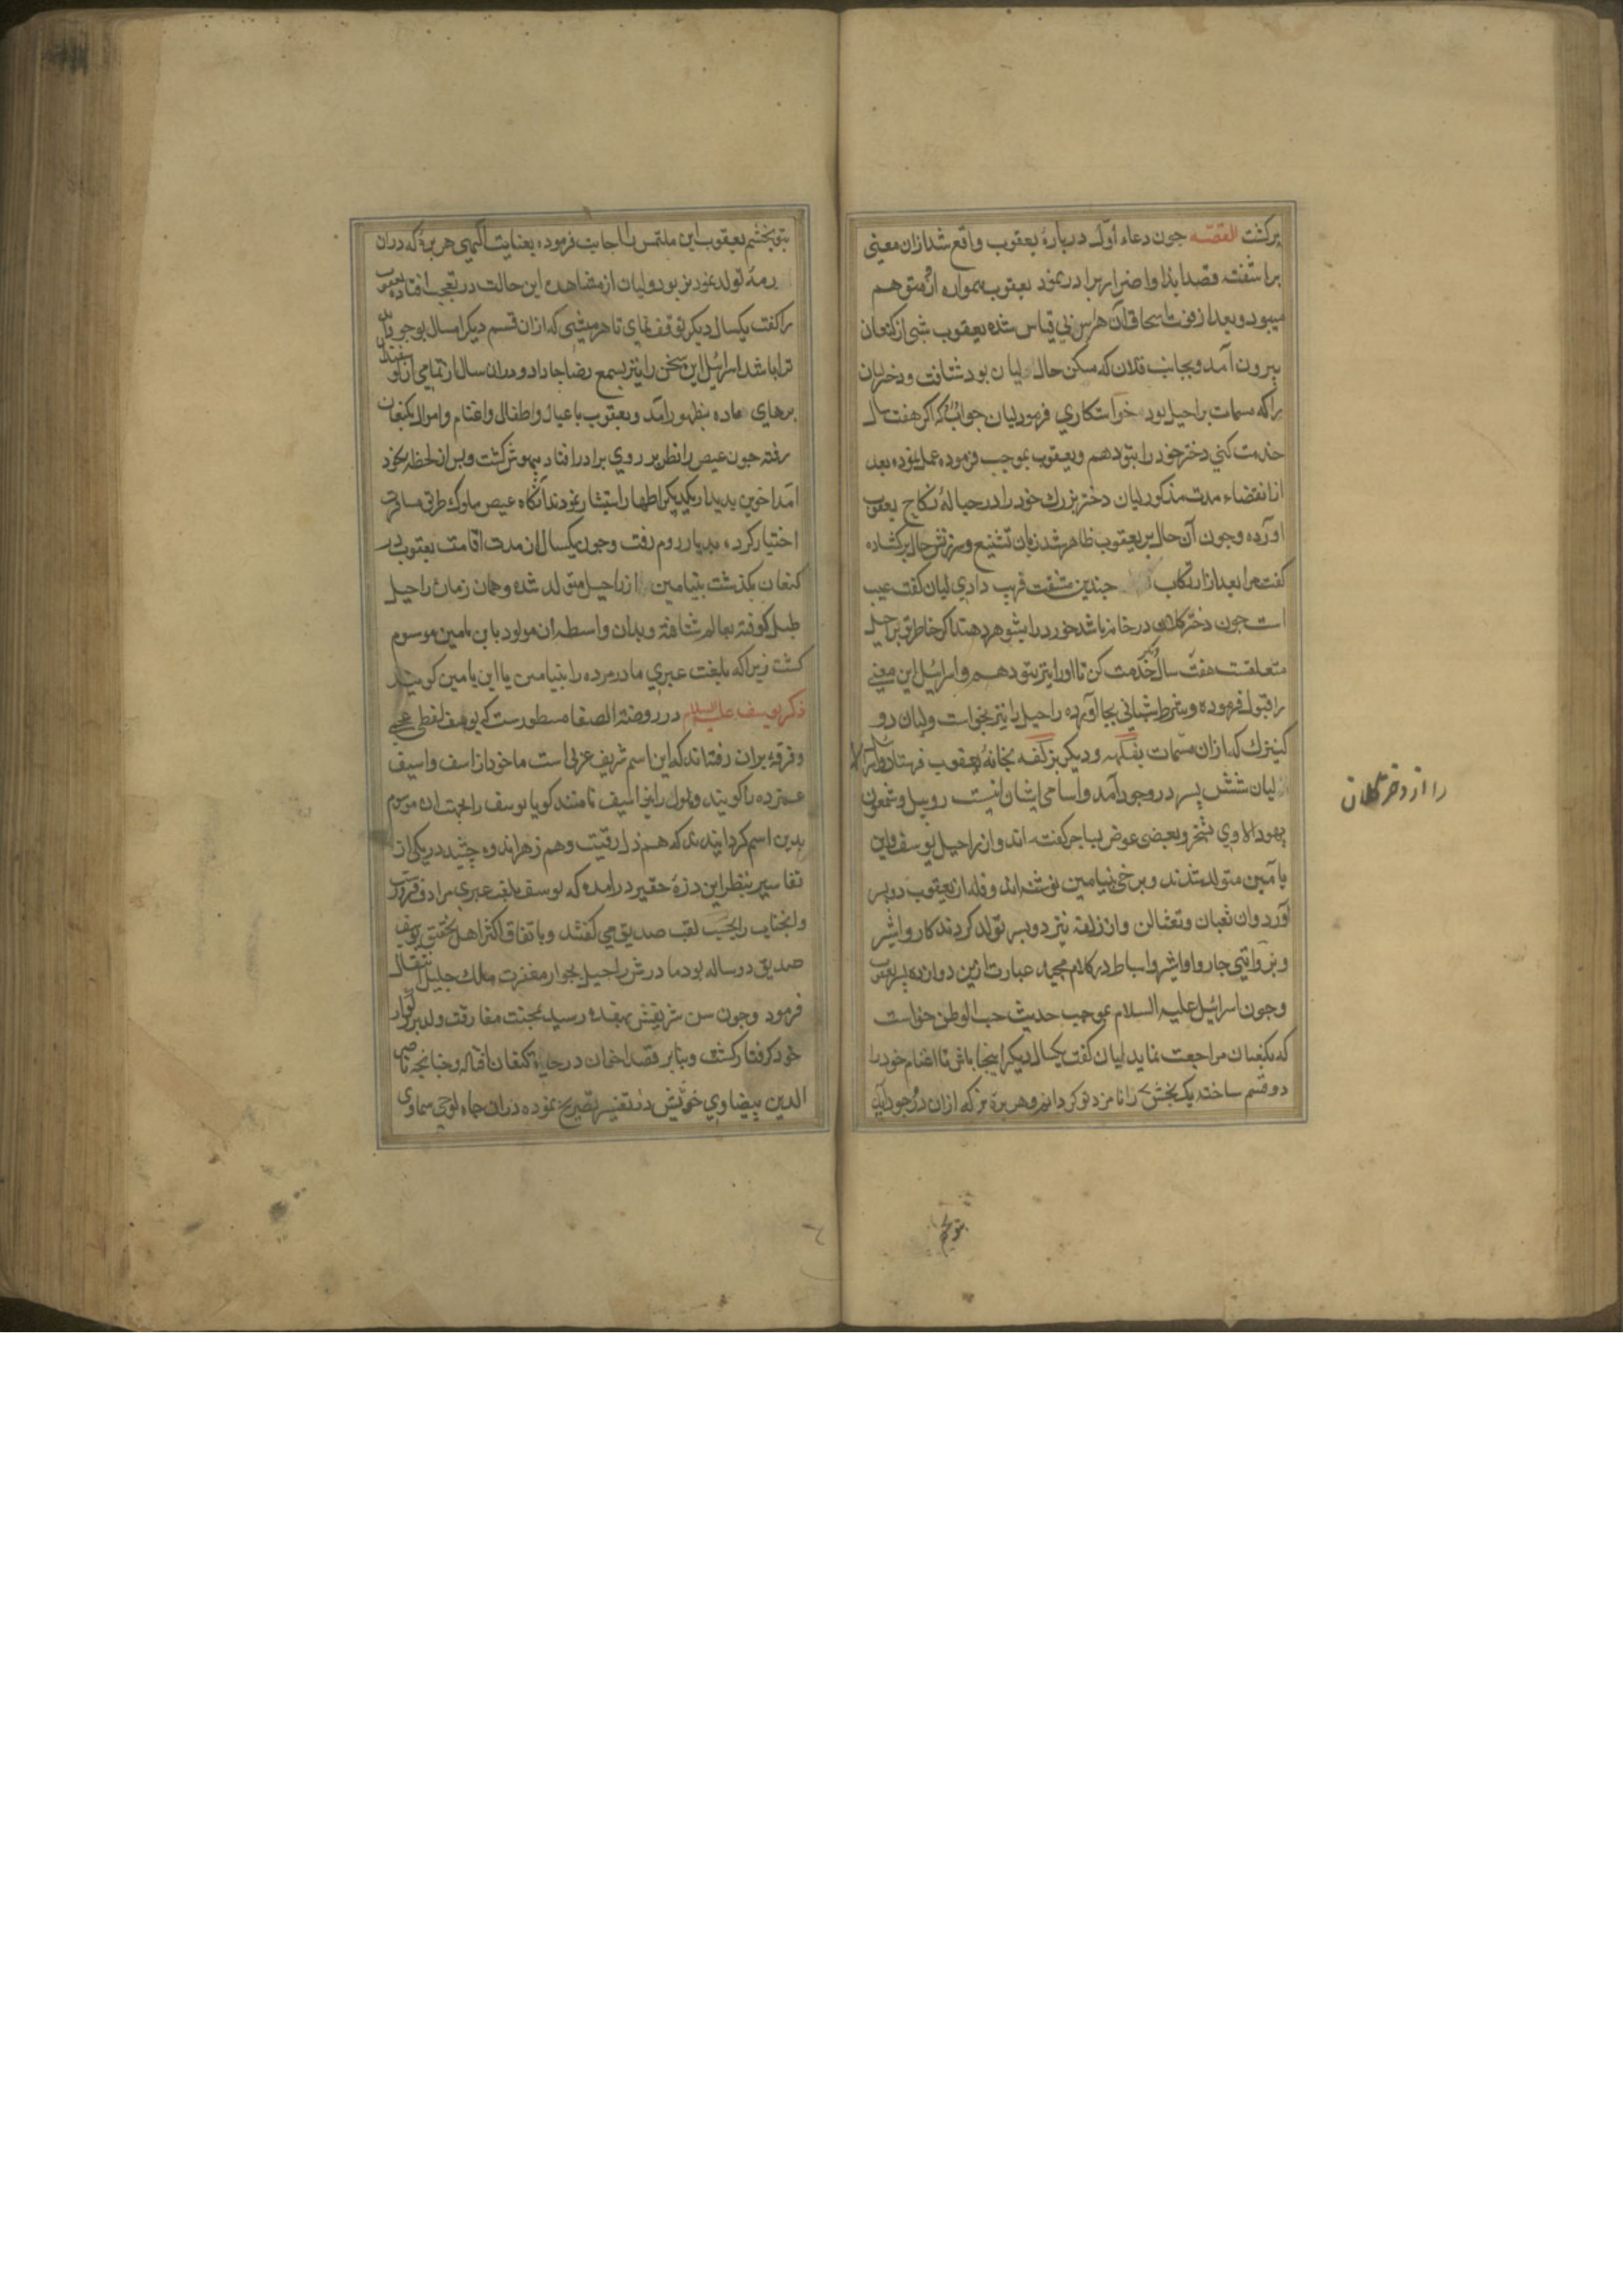 برکشت القصّه جون دعاء اوّل دربارهٔ یعقوب واقع شد ازان معنی
براشفته قصد ایذا واضرار برادر نمود یعقوب همواره ازو متوهم
میبود وبعد از فوت اسحاق آن هراس بی قیاس شده یعقوب شبی از کنعان
بیرون آمد وبجانب فدان که مسکن خال لیان بود شتافت ودختر لیان
را که مسمات براحیل بود خواستکاری فرمود لیان جواب که اکر هفت سال
خدمت کنی دختر خود را بتو دهم ویعقوب بموجب فرموده عمل نموده بعد
از انقضاء مدت مذکور لیان دختر بزرک خود را در حبالهٔ نکاح یعقوب
اورده وجون آن حال بر یعقوب ظاهر شد زبان تشنیع وسرزنش خال برکشاده
کفت مرا بعد از ارتکاب جندین مشقت فریب دادی لیان کفت عیب
است جون دختر کلان در خانه باشد خورد را بشوهر دهند اکر خاطر تو براحیل
متعلقست هفت سال دیکر خدمت کن تا اورا نیز بتو دهم واسرائیل این معنی
را قبول فرموده وشرط شبانی بجا آورده راحیل را نیز بخواست ولیان دو
کنیزک که ازان مسمات بفلهه ودیکر بزلفه بخانهٔ یعقوب فرستاد واسرائیل
را از دختر کلان
لیان شش پسر در وجود آمد واسامی ایشان اینست روبیل وشمعون
یهودا لاوی یشخر وبعضی عوض یساجر کفته اند واز راحیل یوسف وابن
یامین متولد شدند وبرخی بنیامین نوشته اند وفله از یعقوب دو پسر
آورد وان نعبان ونغثالن واز زلفه نیز دو پسر تولد کردند کار واشر
وبروایتی جار واواشیر واسباط در کلام مجید عبارت ازین دوازده پسر یعقوب
وجون اسرائیل علیه السلام بموجب حدیث حب الوطن خواست
که بکنعان مراجعت نماید لیان کفت یکسال دیکر اینجا باش تا اغنام خود را
دو قسم ساخته یک بخش را نامزد تو کردانم وهر برهٔ نر که ازان در وجود آید
بتو بخشم
بتو بخشم یعقوب این ملتمس را اجابت فرموده بعنایت الهی هر برهٔ که دران
رمه تولد نمود نر بود ولیان از مشاهده این حالت در تعجب افتاده یعقوب
را کفت یکسال دیکر توقف نمای تا هر میشی که ازان قسم دیکر امسال بوجود آید
ترا باشد اسرائیل این سخن را نیز بسمع رضا جا داد ودران سال از تمامی ان کوسفندان
برهای ماده بظهور آمد ویعقوب با عیال واطفال واغنام واموال بکنعان
رفته جون عیص را نظر بر روی برادر افتاد بیهوش کشت وپس از لحظه بخود
امد اخوین بدیدار یکدیکر اظهار استبشار نمودند آنکاه عیص سلوک طریق مسافرت
اختیار کرد، بدیار روم رفت وجون یکسال از مدت اقامت یعقوب در
کنعان بکذشت بنیامین از راحیل متولد شده وهمان زمان راحیل
طبل کوفته بعالم شتافته وبدان واسطه ان مولود بابن یامین موسوم
کشت زیرا که بلغت عبری مادر مرده را بنیامین یا ابن یامین کویند
ذکر یوسف علیه السلام در روضة الصفا مسطورست که یوسف لفظی عجمی
وفرقهٔ بران رفته اند که این اسم شریف عربی است ماخوذ از اسف واسیف
غمزده را کویند وملول را نیز اسیف نامند کویا یوسف را بجهت ان موسوم
بدین اسم کردانیدند که هم ذل رقیت وهم زهر اندوه چشید در یکی از
تفاسیر بنظر این ذرهٔ حقیر درامده که یوسف بلغت عبری مرادف
وانجناب را بحسب لقب صدیق می کفتند وباتفاق اکثر اهل تحقیق یوسف
صدیق دو ساله بود مادرش راحیل بجوار مغفرت ملک جلیل انتقال
فرمود وجون سن شریفش بهفده رسید بمحنت مفارقت ولد بزرکوار
خود کرفتار کشت وبنابر قصد اخوان در چاه کنعان افتاد وچنانچه قاضی
ناصر الدین بیضاوی خویش در تفسیر تصریح نموده دران چاه لوحی سماوی